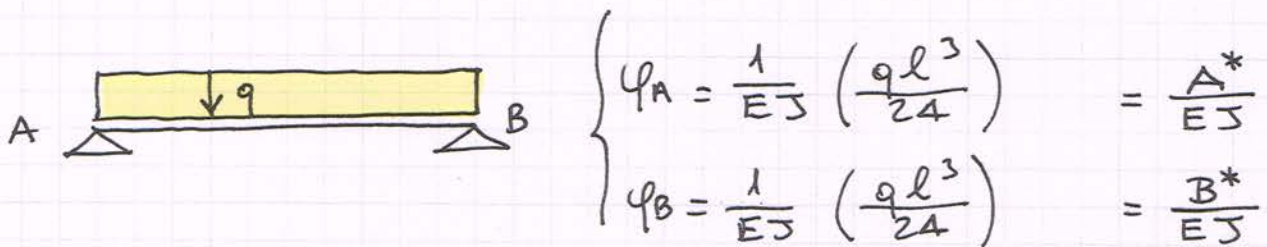 A q B
φA = 1/EJ (ql³/24) = A*/EJ
φB = 1/EJ (ql³/24) = B*/EJ